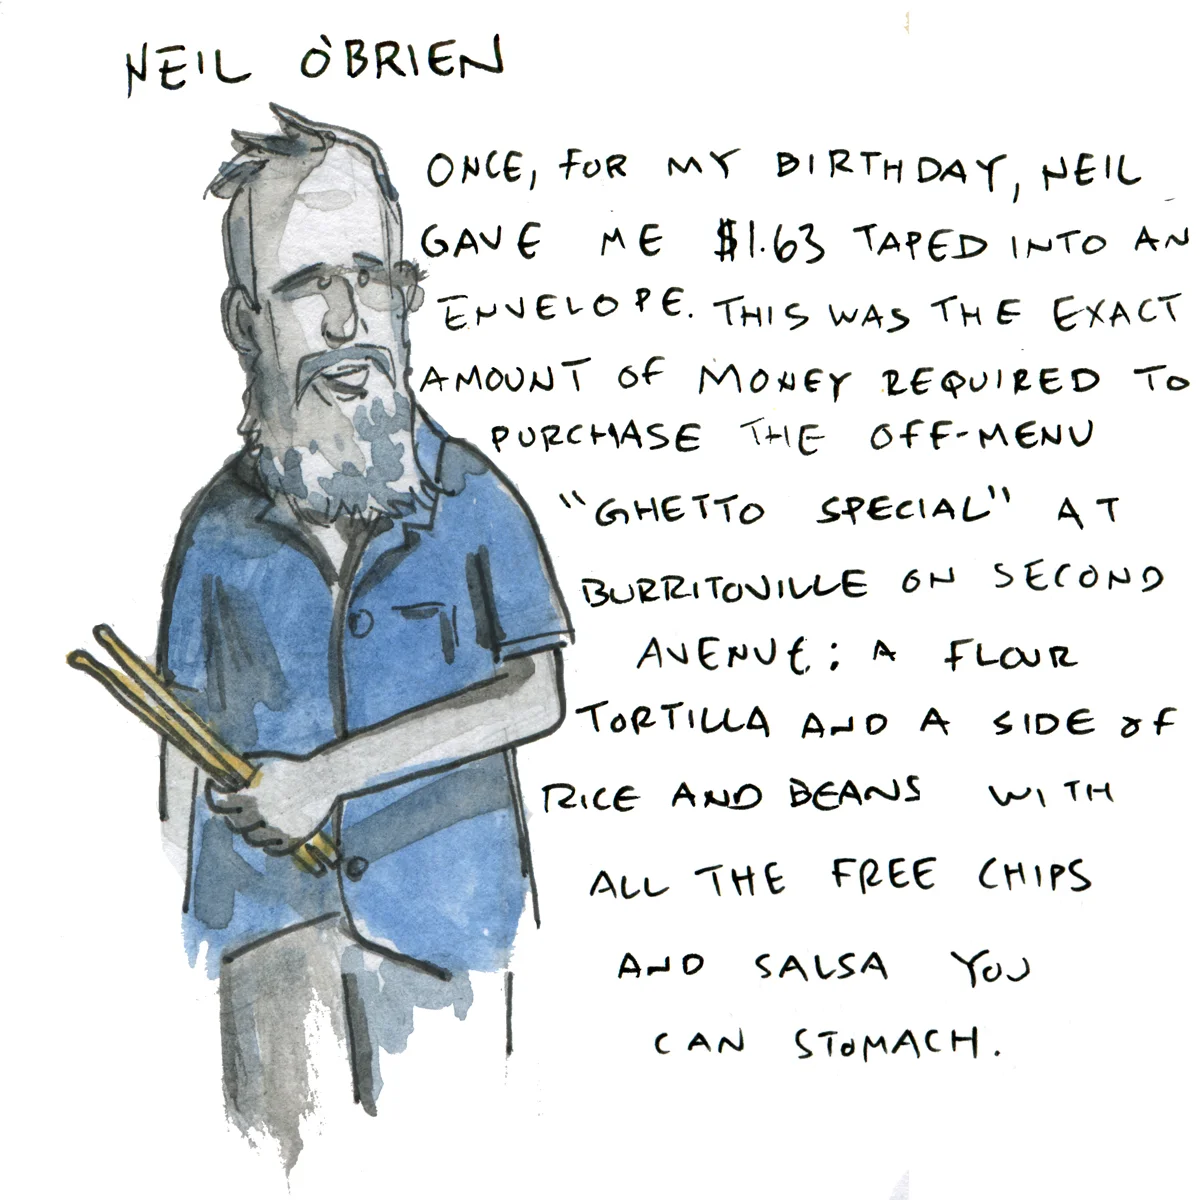 NEIL O'BRIEN
ONCE, FOR MY BIRTHDAY, NEIL
GAVE ME $1.63 TAPED INTO AN
ENVELOPE. THIS WAS THE EXACT
AMOUNT OF MONEY REQUIRED TO
PURCHASE THE OFF-MENU
"GHETTO SPECIAL" AT
BURRITOVILLE ON SECOND
AVENUE: A FLOUR
TORTILLA AND A SIDE OF
RICE AND BEANS WITH
ALL THE FREE CHIPS
AND SALSA YOU
CAN STOMACH.